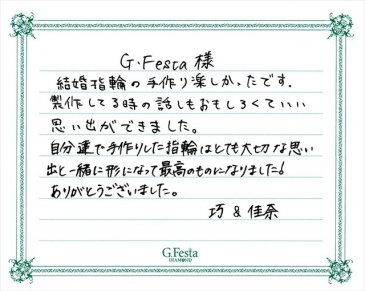 G.Festa 様
結婚指輪の手作り楽しかったです.
製作してる時の話しもおもしろくていい
思い出ができました。
自分達で手作りした指輪はとても大切な思い
出と一緒に形になって最高のものになりました!
ありがとうございました。
巧 & 佳奈
G.Festa
DIAMOND